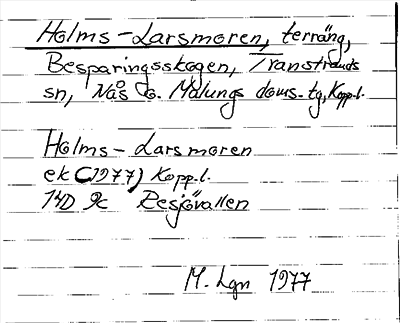 Holms-Larsmoren, terräng,
Besparingsskogen, Transtrands
sn, Nås o. Malungs doms.tg, Kopp.l.
Holms-Larsmoren
ek (1977) Kopp.l.
14D 9c Resjövallen
M. Lgn 1977